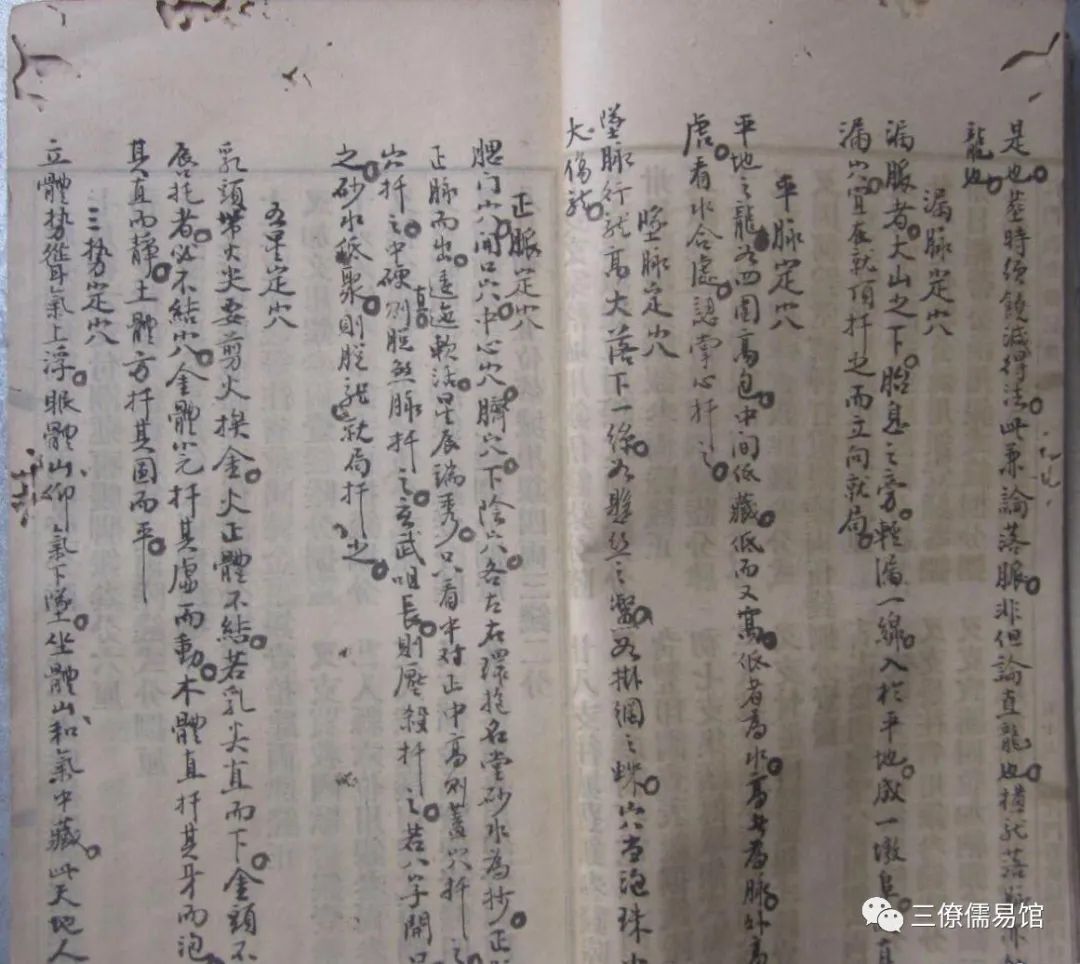 是也基時須饒減得法此兼論落脈非但論真龍也
龍也
漏脈定穴
漏脈者大山之下胎息之旁輕漏一線入於平地成一墩阜
漏穴宜在就頂扦之而立向就局
平脈定穴
平地之龍为四围高包中间低藏低而又高低者为水高者为脈外高
虎看水合處認掌心扦之
墜脈定穴
墜脈行龍高大落下一條为懸丝之繫为掛網之蛛穴当泡珠
大傷龍
正脈定穴
腮门穴间口穴中心穴臍穴下陰穴各左右環抱名堂砂水為抄正
正脈而出逶迤軟活星辰端秀只看中对正中高则蓋穴扦之
穴扦之中硬则脫煞脉扦之玄武咀長则壓殺扦之若八字開口
之砂水低聚则脫龍就局扦之
五星定穴
乳頭帶火尖要剪火換金火正體不結若乳尖直而下金頭不
唇托者必不結穴金體窩扦其虛而動木體直扦其牙而泡
其真而静土體方扦其圆而平
三勢定穴
立體势聳氣上浮眠體山仰氣下墜坐體山和氣中藏此天地人
三僚儒易馆